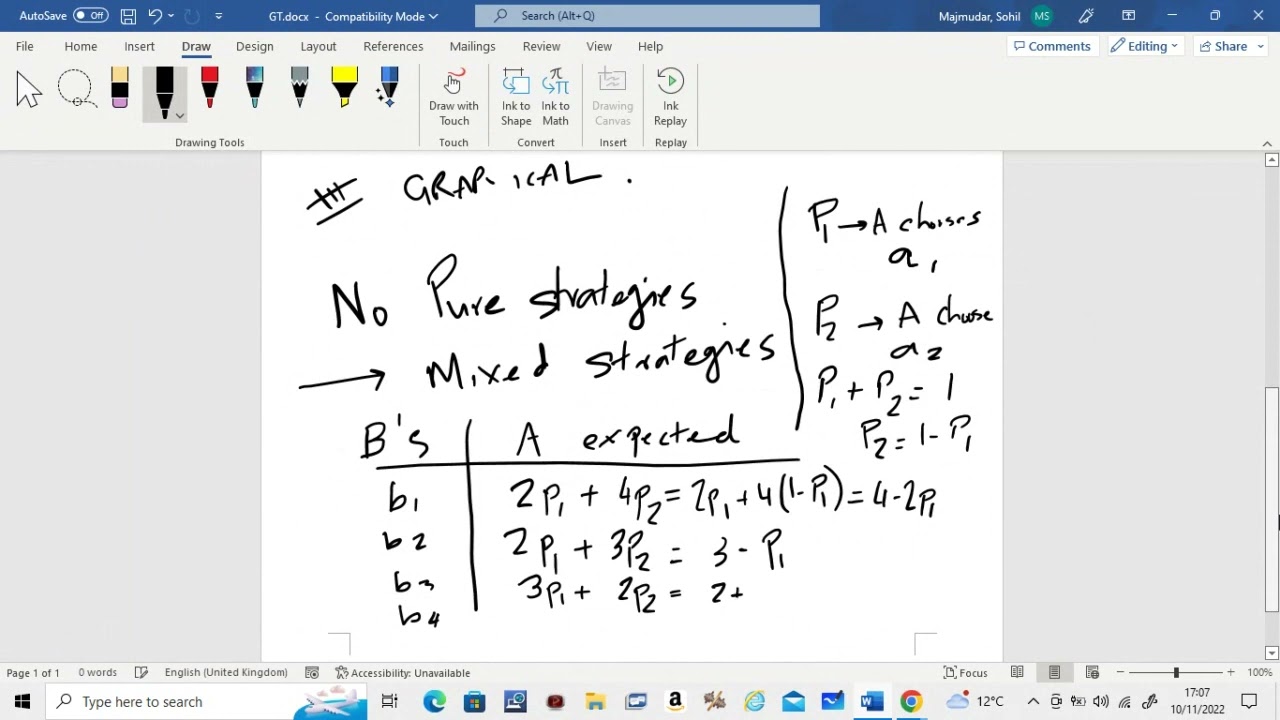 AutoSave Off GT.docx - Compatibility Mode Search (Alt+Q) Majmudar, Sohil MS
File Home Insert Draw Design Layout References Mailings Review View Help Comments Editing Share
Draw with Touch Ink to Shape Ink to Math Drawing Canvas Ink Replay
Drawing Tools Touch Convert Insert Replay
GRAPHICAL .
No Pure strategies
→ Mixed strategies
P1 → A chooses
a1
P2 → A choose
a2
P1 + P2 = 1
P2 = 1 - P1
B's A expected
b1 2P1 + 4P2 = 2P1 + 4(1 - P1) = 4 - 2P1
b2 2P1 + 3P2 = 3 - P1
b3 3P1 + 2P2 = 2 +
b4
Page 1 of 1 0 words English (United Kingdom) Accessibility: Unavailable Focus 100%
Type here to search 12°C 17:07
10/11/2022